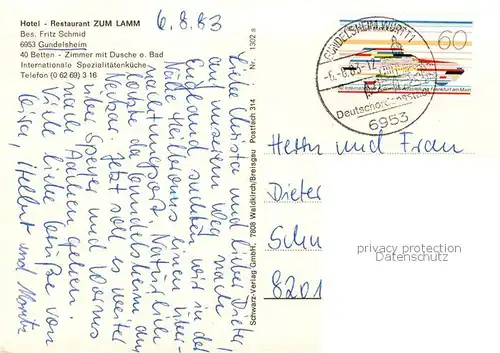 Hotel - Restaurant ZUM LAMM
Bes. Fritz Schmid
6953 Gundelsheim
40 Betten - Zimmer mit Dusche o. Bad
Internationale Spezialitätenküche
Telefon (0 62 69) 3 16
6.8.83
Liebe Christa und lieber Dieter,
auf unserem Weg nach
England suchten wir in der
Nähe Heilbronns einen Über-
nachtungsort. Natürlich
wurde es Gundelsheim am
Neckar. Jetzt soll es weiter
über Speyer und Worms
nach Aachen gehen.
Viele liebe Grüße von
Helmut und
Schwarz-Verlag GmbH, 7808 Waldkirch/Breisgau Postfach 314 Nr. 1302 s
60
GUNDELSHEIM, WÜRTT
-6.-8.83-12
Deutschordensstadt
6953
Herrn und Frau
Dieter
Schu
8201
privacy protection
Datenschutz